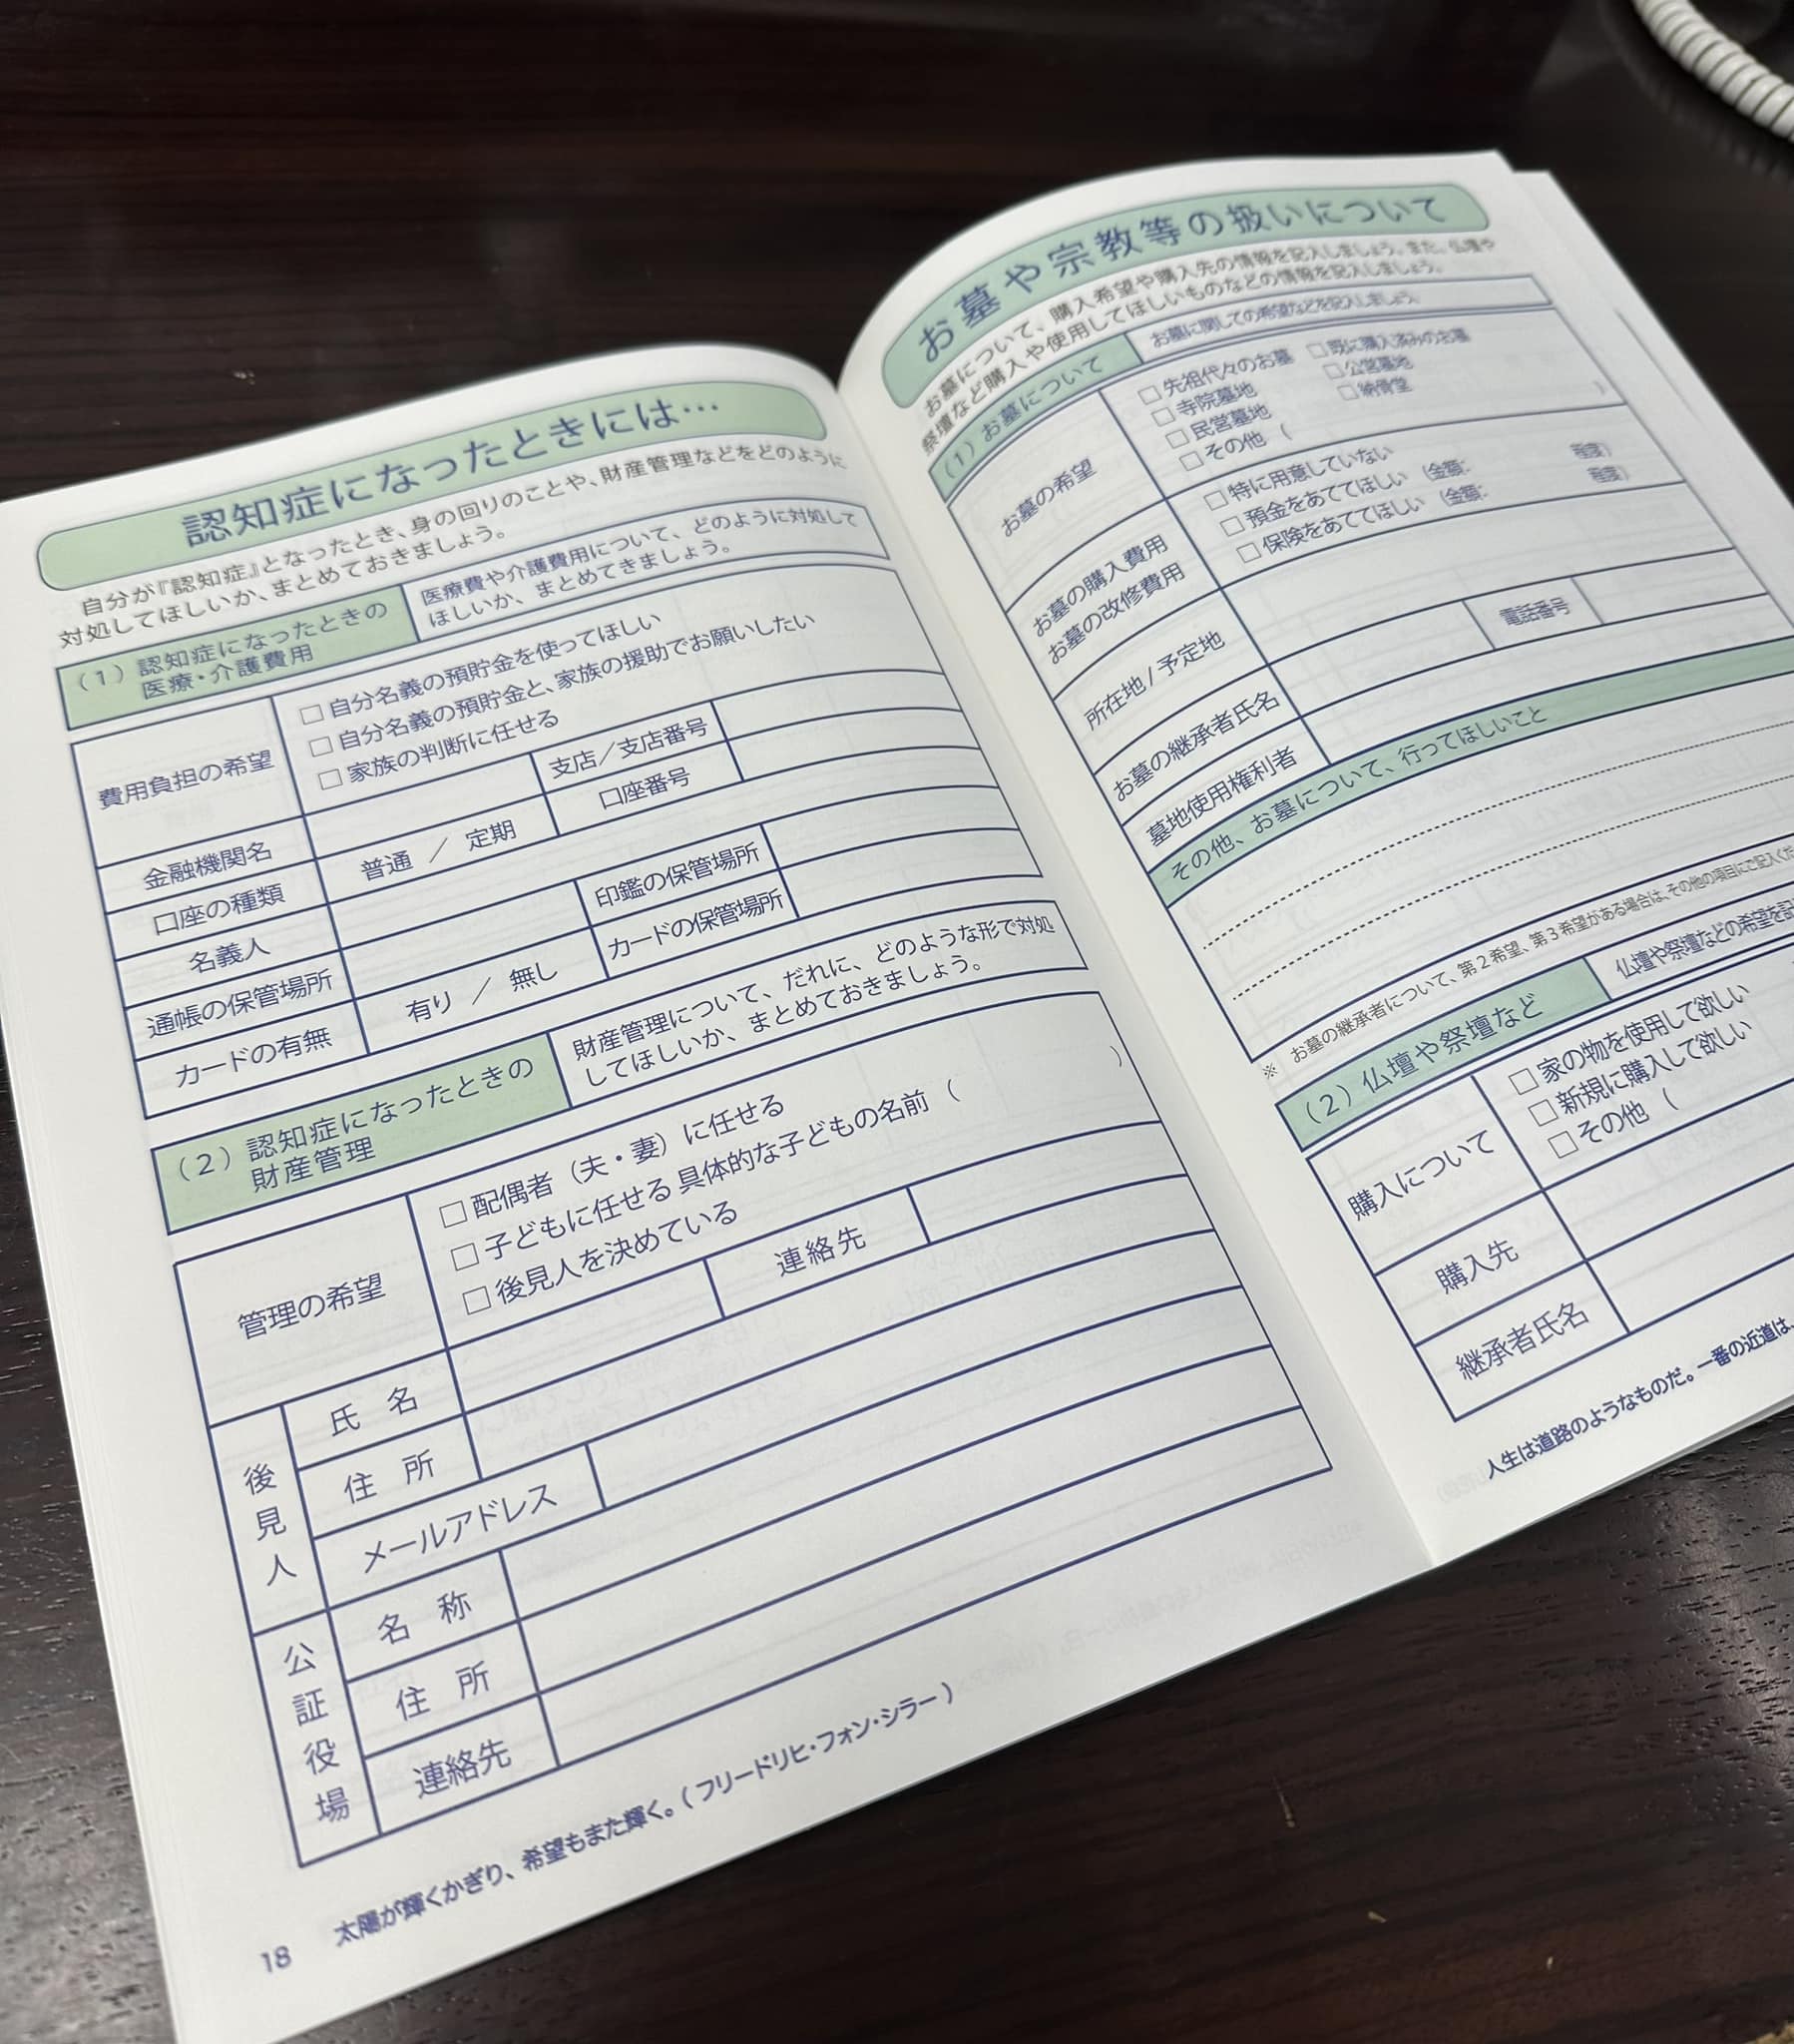 認知症になったときには…
自分が『認知症』となったとき、身の回りのことや、財産管理などをどのように
対処してほしいか、まとめておきましょう。
（1）認知症になったときの
医療・介護費用
医療費や介護費用について、どのように対処して
ほしいか、まとめてきましょう。
費用負担の希望
□ 自分名義の預貯金を使ってほしい
□ 自分名義の預貯金と、家族の援助でお願いしたい
□ 家族の判断に任せる
金融機関名
支店／支店番号
口座の種類
普通 ／ 定期
口座番号
名義人
通帳の保管場所
印鑑の保管場所
カードの有無
有り ／ 無し
カードの保管場所
（2）認知症になったときの
財産管理
財産管理について、だれに、どのような形で対処
してほしいか、まとめておきましょう。
管理の希望
□ 配偶者（夫・妻）に任せる
□ 子どもに任せる 具体的な子どもの名前（ ）
□ 後見人を決めている
後見人
氏 名
連絡先
住 所
メールアドレス
公証役場
名 称
住 所
連絡先
18 太陽が輝くかぎり、希望もまた輝く。( フリードリヒ・フォン・シラー )
お墓や宗教等の扱いについて
お墓について、購入希望や購入先の情報を記入しましょう。また、仏壇や
祭壇など購入や使用してほしいものなどの情報を記入しましょう。
（1）お墓について
お墓に関しての希望などを記入しましょう。
お墓の希望
□ 先祖代々のお墓 □ 既に購入済みのお墓
□ 寺院墓地 □ 公営墓地
□ 民営墓地 □ 納骨堂
□ その他（ ）
お墓の購入費用
お墓の改修費用
□ 特に用意していない
□ 預金をあててほしい （金額: 程度）
□ 保険をあててほしい （金額: 程度）
所在地 / 予定地
お墓の継承者氏名
電話番号
墓地使用権利者
その他、お墓について、行ってほしいこと
※ お墓の継承者について、第２希望、第３希望がある場合は、その他の項目にご記入くだ
（2）仏壇や祭壇など
仏壇や祭壇などの希望を記
購入について
□ 家の物を使用して欲しい
□ 新規に購入して欲しい
□ その他（
購入先
継承者氏名
人生は道路のようなものだ。一番の近道は、